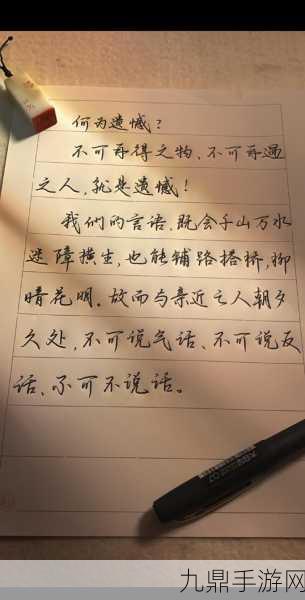 何为遗憾？
不可再得之物、不可再遇
之人，就是遗憾！
我们的言语，既会千山万水
迷障横生，也能铺路搭桥，柳
暗花明。故而与亲近之人朝夕
久处，不可说气话、不可说反
话、不可不说话。
九鼎手游网